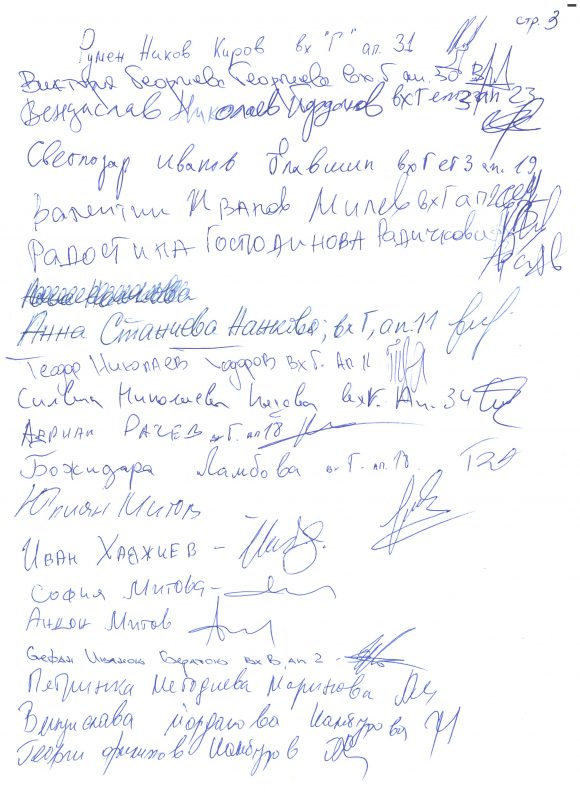 стр. 3
Румен Ников Киров вх "Г" ап. 31
Виктория Георгиева Георгиева вх Г ап. 30
Венцислав Николаев Йорданов вх Г ет 3 ап 23
Светлозар Иванов вх Г ет 3 ап. 19
Валентин Иванов Милев вх Г ап
Радостина Господинова Радичкова
Анна Станчева Нанкова; вх Г, ап. 11
Теодор Николаев Тодоров вх Г. Ап 11
Силвия Николаева вх Г. Ап. 34
Адриан Рачев вх Г. ап 18
Божидара Ламбова вх Г. ап. 18.
Юлиян Митов
Иван Хаджиев -
София Митова -
Антон Митов
Стефан вх В, ап 2 -
Петринка Методиева Маринова
Йорданова Камбурова
Георги Камбуров